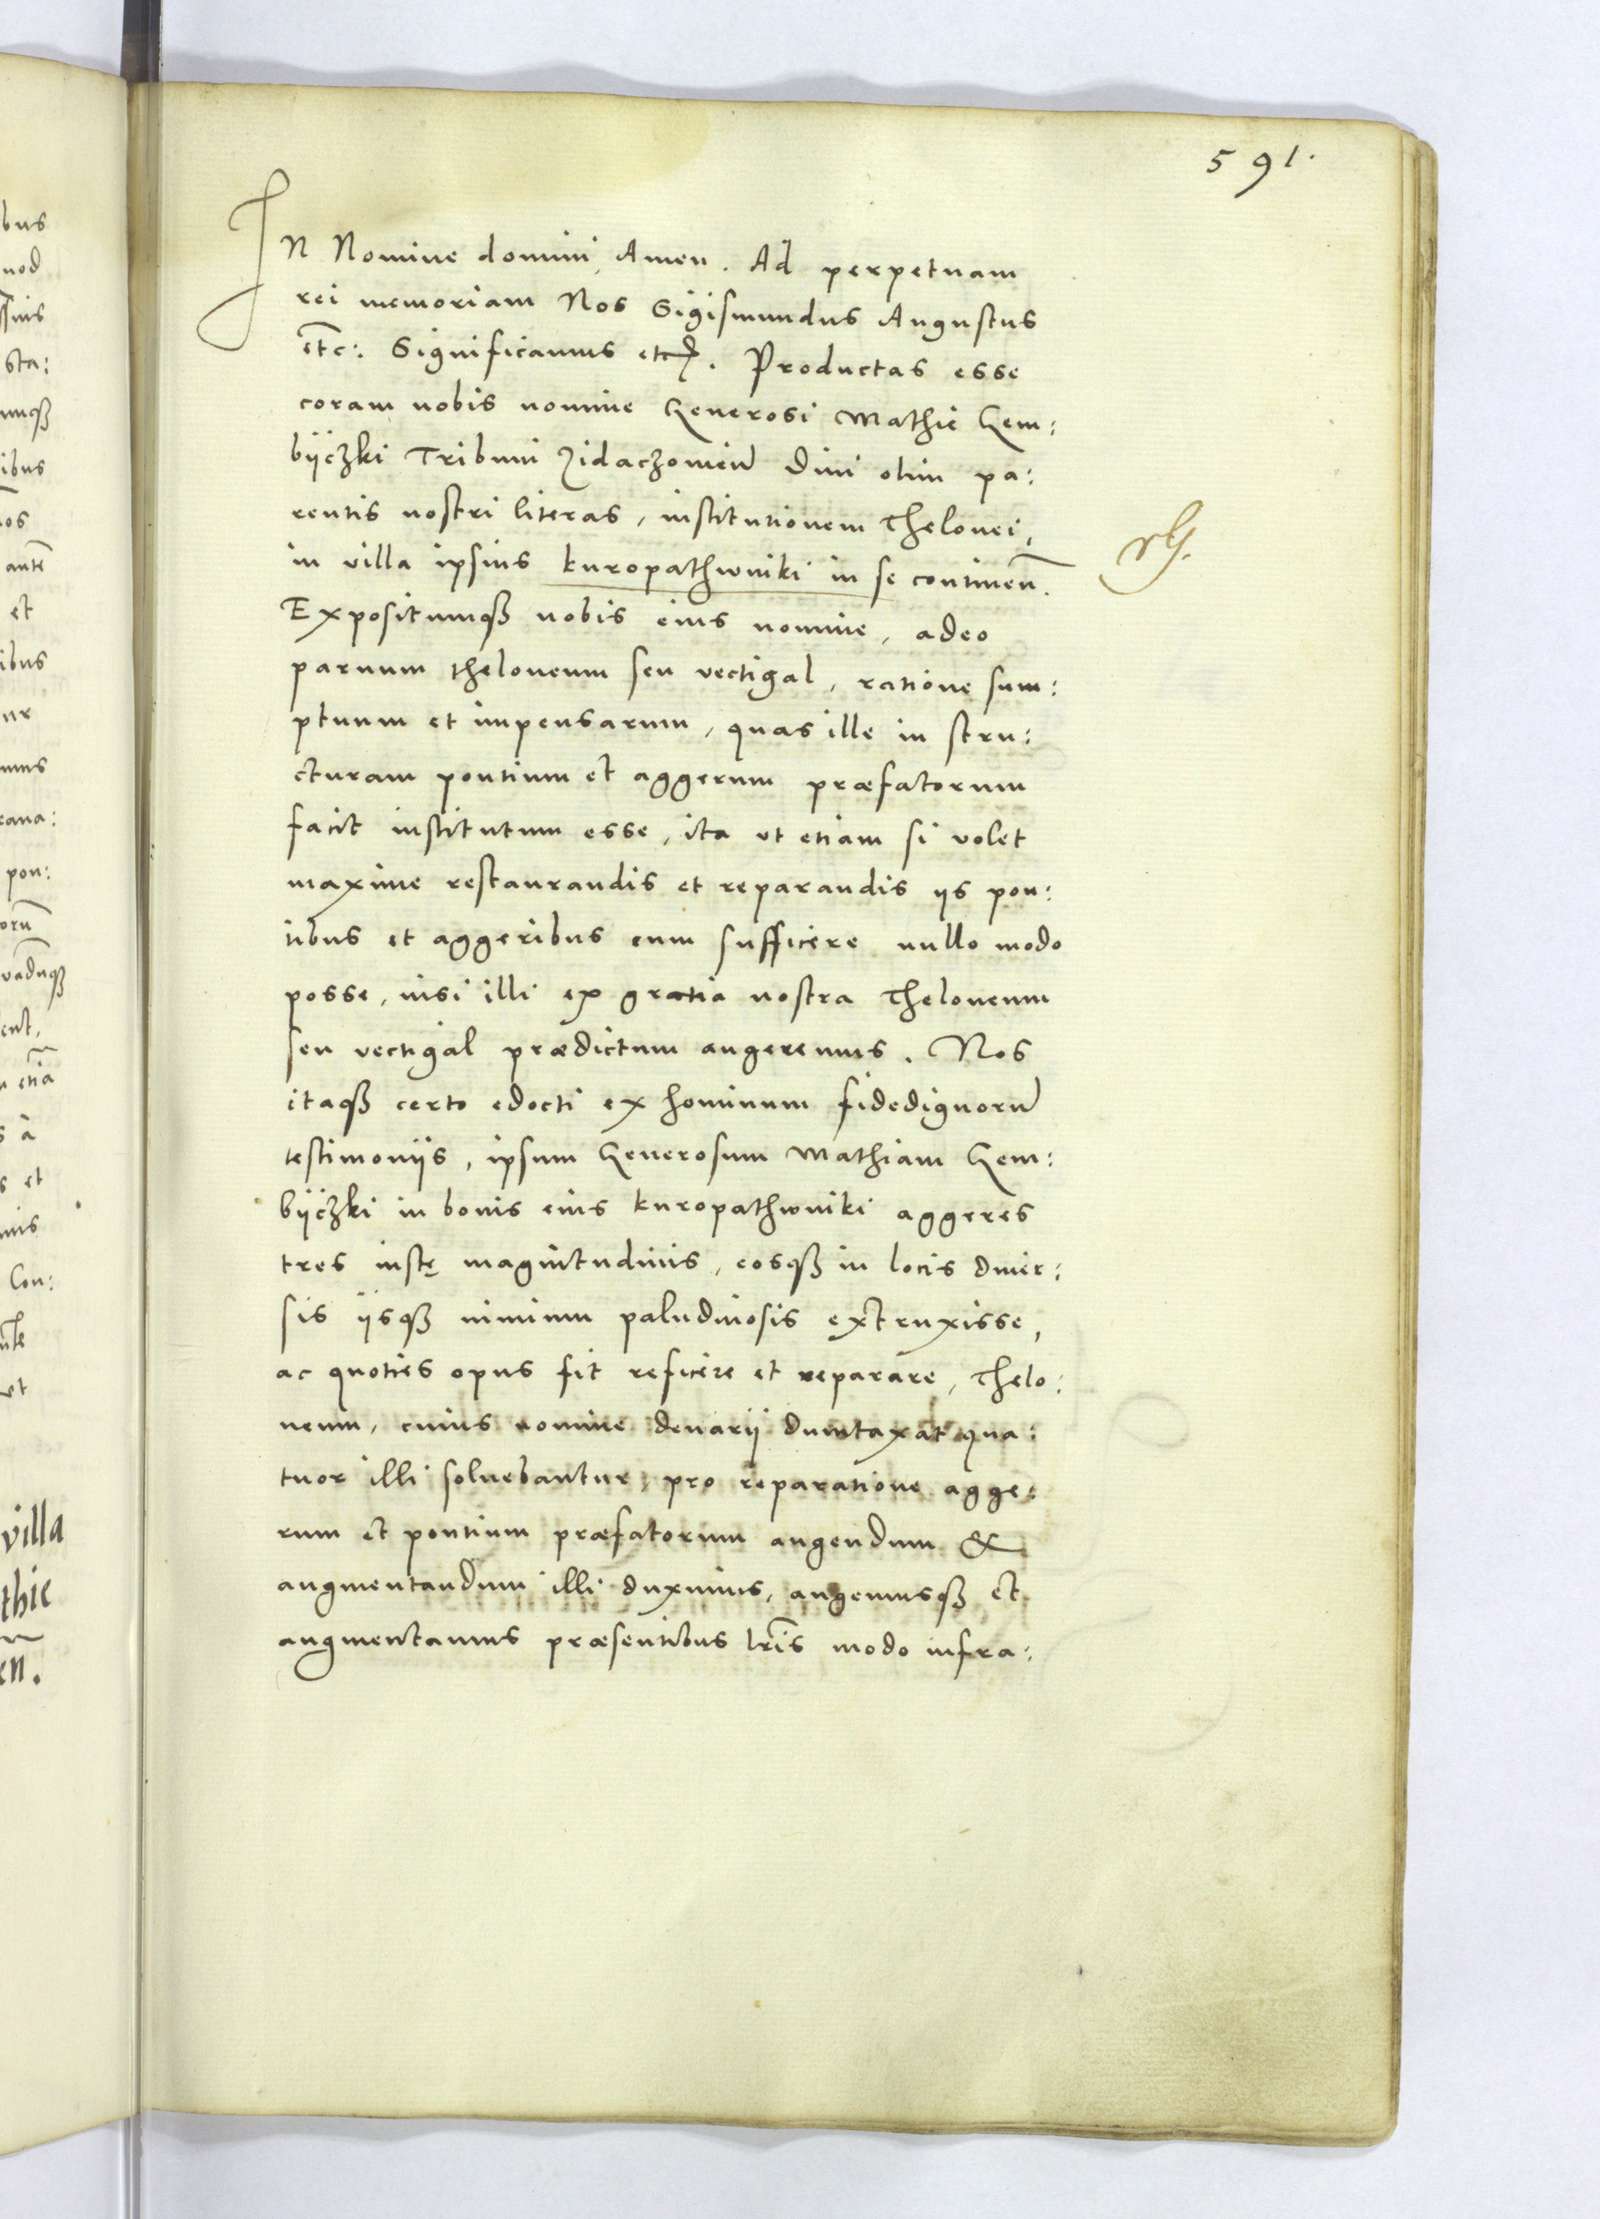 591.
In Nomine domini Amen. Ad perpetuam
rei memoriam Nos Sigismundus Augustus
etc: Significamus etc. Productas esse
coram nobis nomine Generosi Mathie Gem:
bijczki Tribuni Zidaczovien̄ Divi olim pa:
rentis nostri literas, institutionem Thelonei,
in villa ipsius Kuropathwniki in se continen̄.
Expositumqȝ nobis eius nomine, adeo
parvum theloneum seu vectigal, ratione sum:
ptuum et impensarum, quas ille in stru:
cturam pontium et aggerum præfatorum
facit institutum esse, ita ut etiam si volet
maxime restaurandis et reparandis iis pon:
tibus et aggeribus eum sufficere nullo modo
posse, nisi illi ex gratia nostra Theloneum
seu vectigal prædictum augeremus. Nos
itaqȝ certo edocti ex hominum fidedignorū
testimoniis, ipsum Generosum Mathiam Gem:
bijczki in bonis eius Kuropathwniki aggeres
tres iustę magnitudinis, eosqȝ in locis diver:
sis iisqȝ nimium paludinosis extruxisse,
ac quoties opus fit reficere et reparare, Thelo:
neum, cuius nomine denarii duntaxat qua:
tuor illi solvebantur, pro reparatione agge:
rum et pontium præfatorum augendum &
augmentandum illi duximus, augemusqȝ et
augmentamus præsentibus lr̄is modo infra:
bus
uod
sta:
ibus
ante
et
ibus
ur
pon:
à
et
Con:
ut
villa
thie
en.